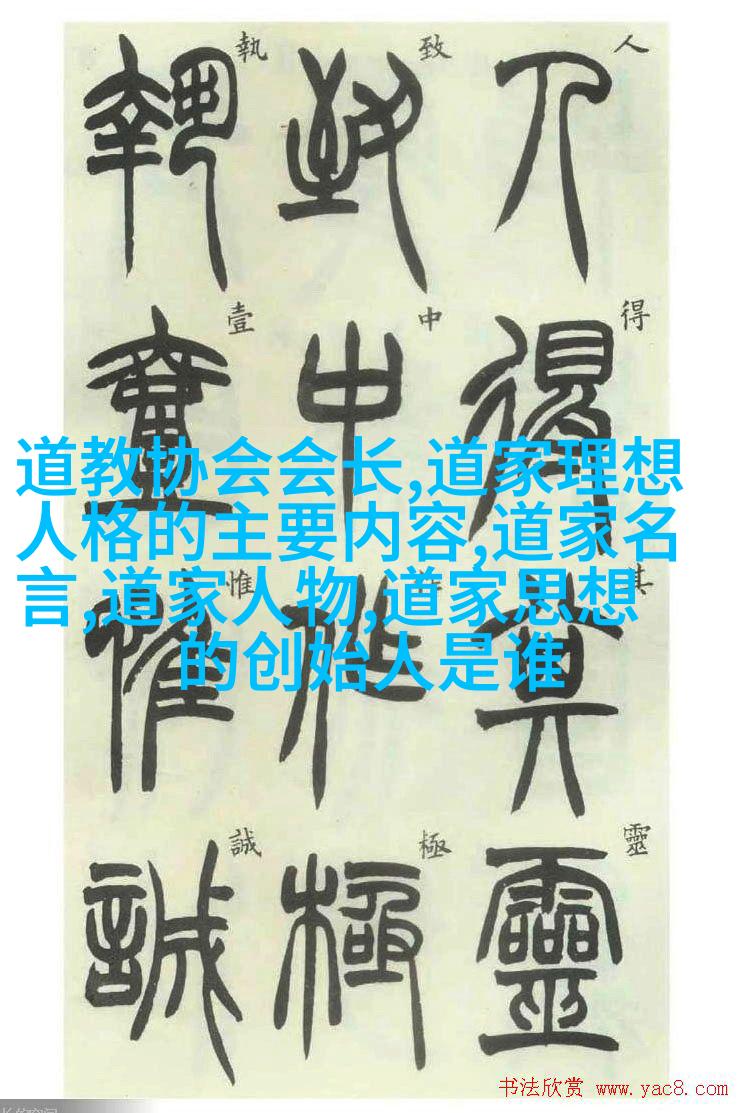 人得其靈
人得其靈
致中極
致中極
執壹惟誠
執壹惟誠
道教协会会长,道家理想
人格的主要内容,道家名
言,道家人物,道家思想
的创始人是谁
书法欣赏 www.yac8.com